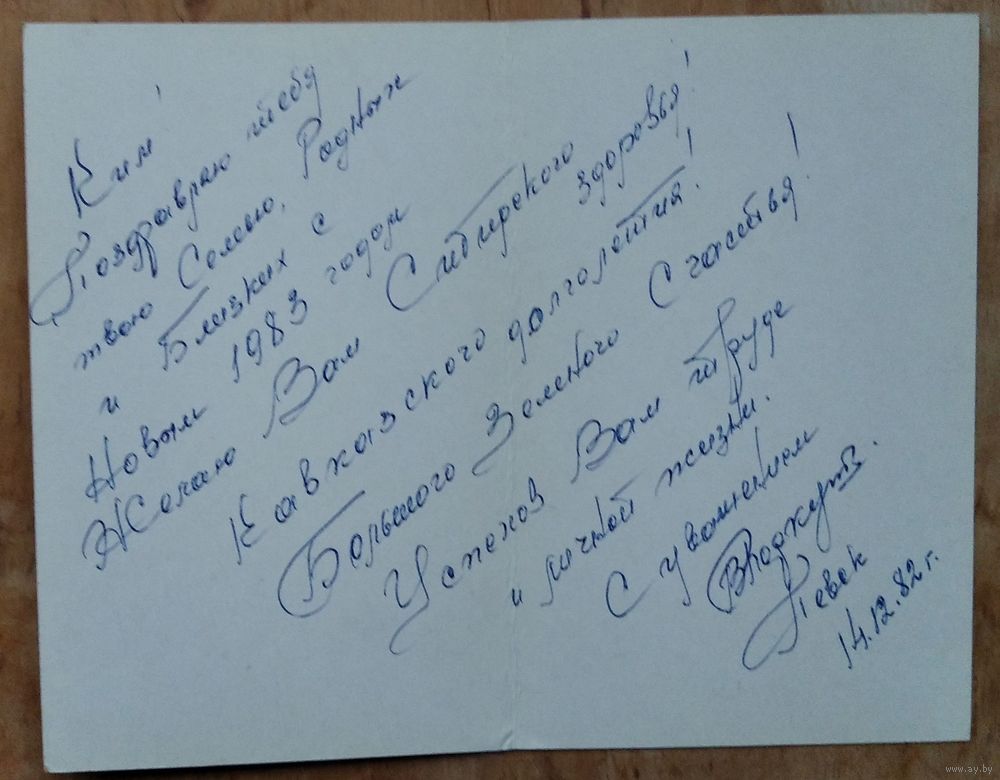 Ким!
Поздравляю тебя
твою Семью, Родных
и Близких с
Новым 1983 годом
Желаю Вам Сибирского здоровья!
Кавказского долголетия!
Большого Земного Счастья!
Успехов Вам труде
и личной жизни.
С уважением
Певек
14.12.82 г.
www.ay.by